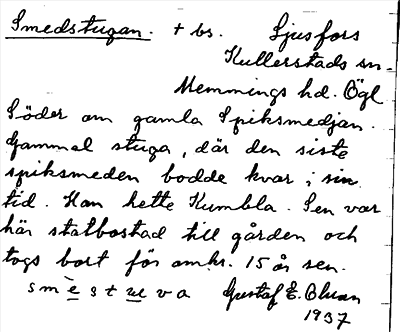 Smedstugan. + bs. Ljusfors
Kullerstads sn.
Memmings hd. Ögl
Söder om gamla Spiksmedjan.
Gammal stuga, där den siste
spiksmeden bodde kvar i sin
tid. Han hette Kumbla. Sen var
här statbostad till gården och
togs bort för omkr. 15 år sen.
smèstuva Gustaf E. Olsson
1937